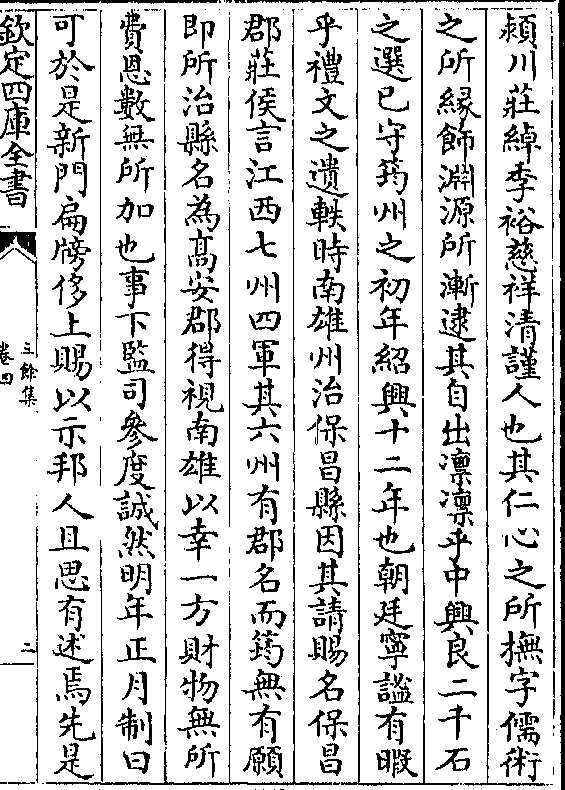 潁川莊綽季裕慈祥清謹人也其仁心之所撫字儒術
之所緣飾淵源所漸逮其自出凛凛乎中興良二千石
之選已守筠州之初年紹興十二年也朝廷寧謐有暇
乎禮文之遺軼時南雄州治保昌縣因其請賜名保昌
郡莊侯言江西七州四軍其六州有郡名而筠無有願
即所治縣名為髙安郡得視南雄以幸一方財物無所
費恩數無所加也事下監司參度誠然明年正月制曰
可於是新門扁牓侈上賜以示邦人且思有述焉先是
欽定四庫全書
三餘集
卷四
二